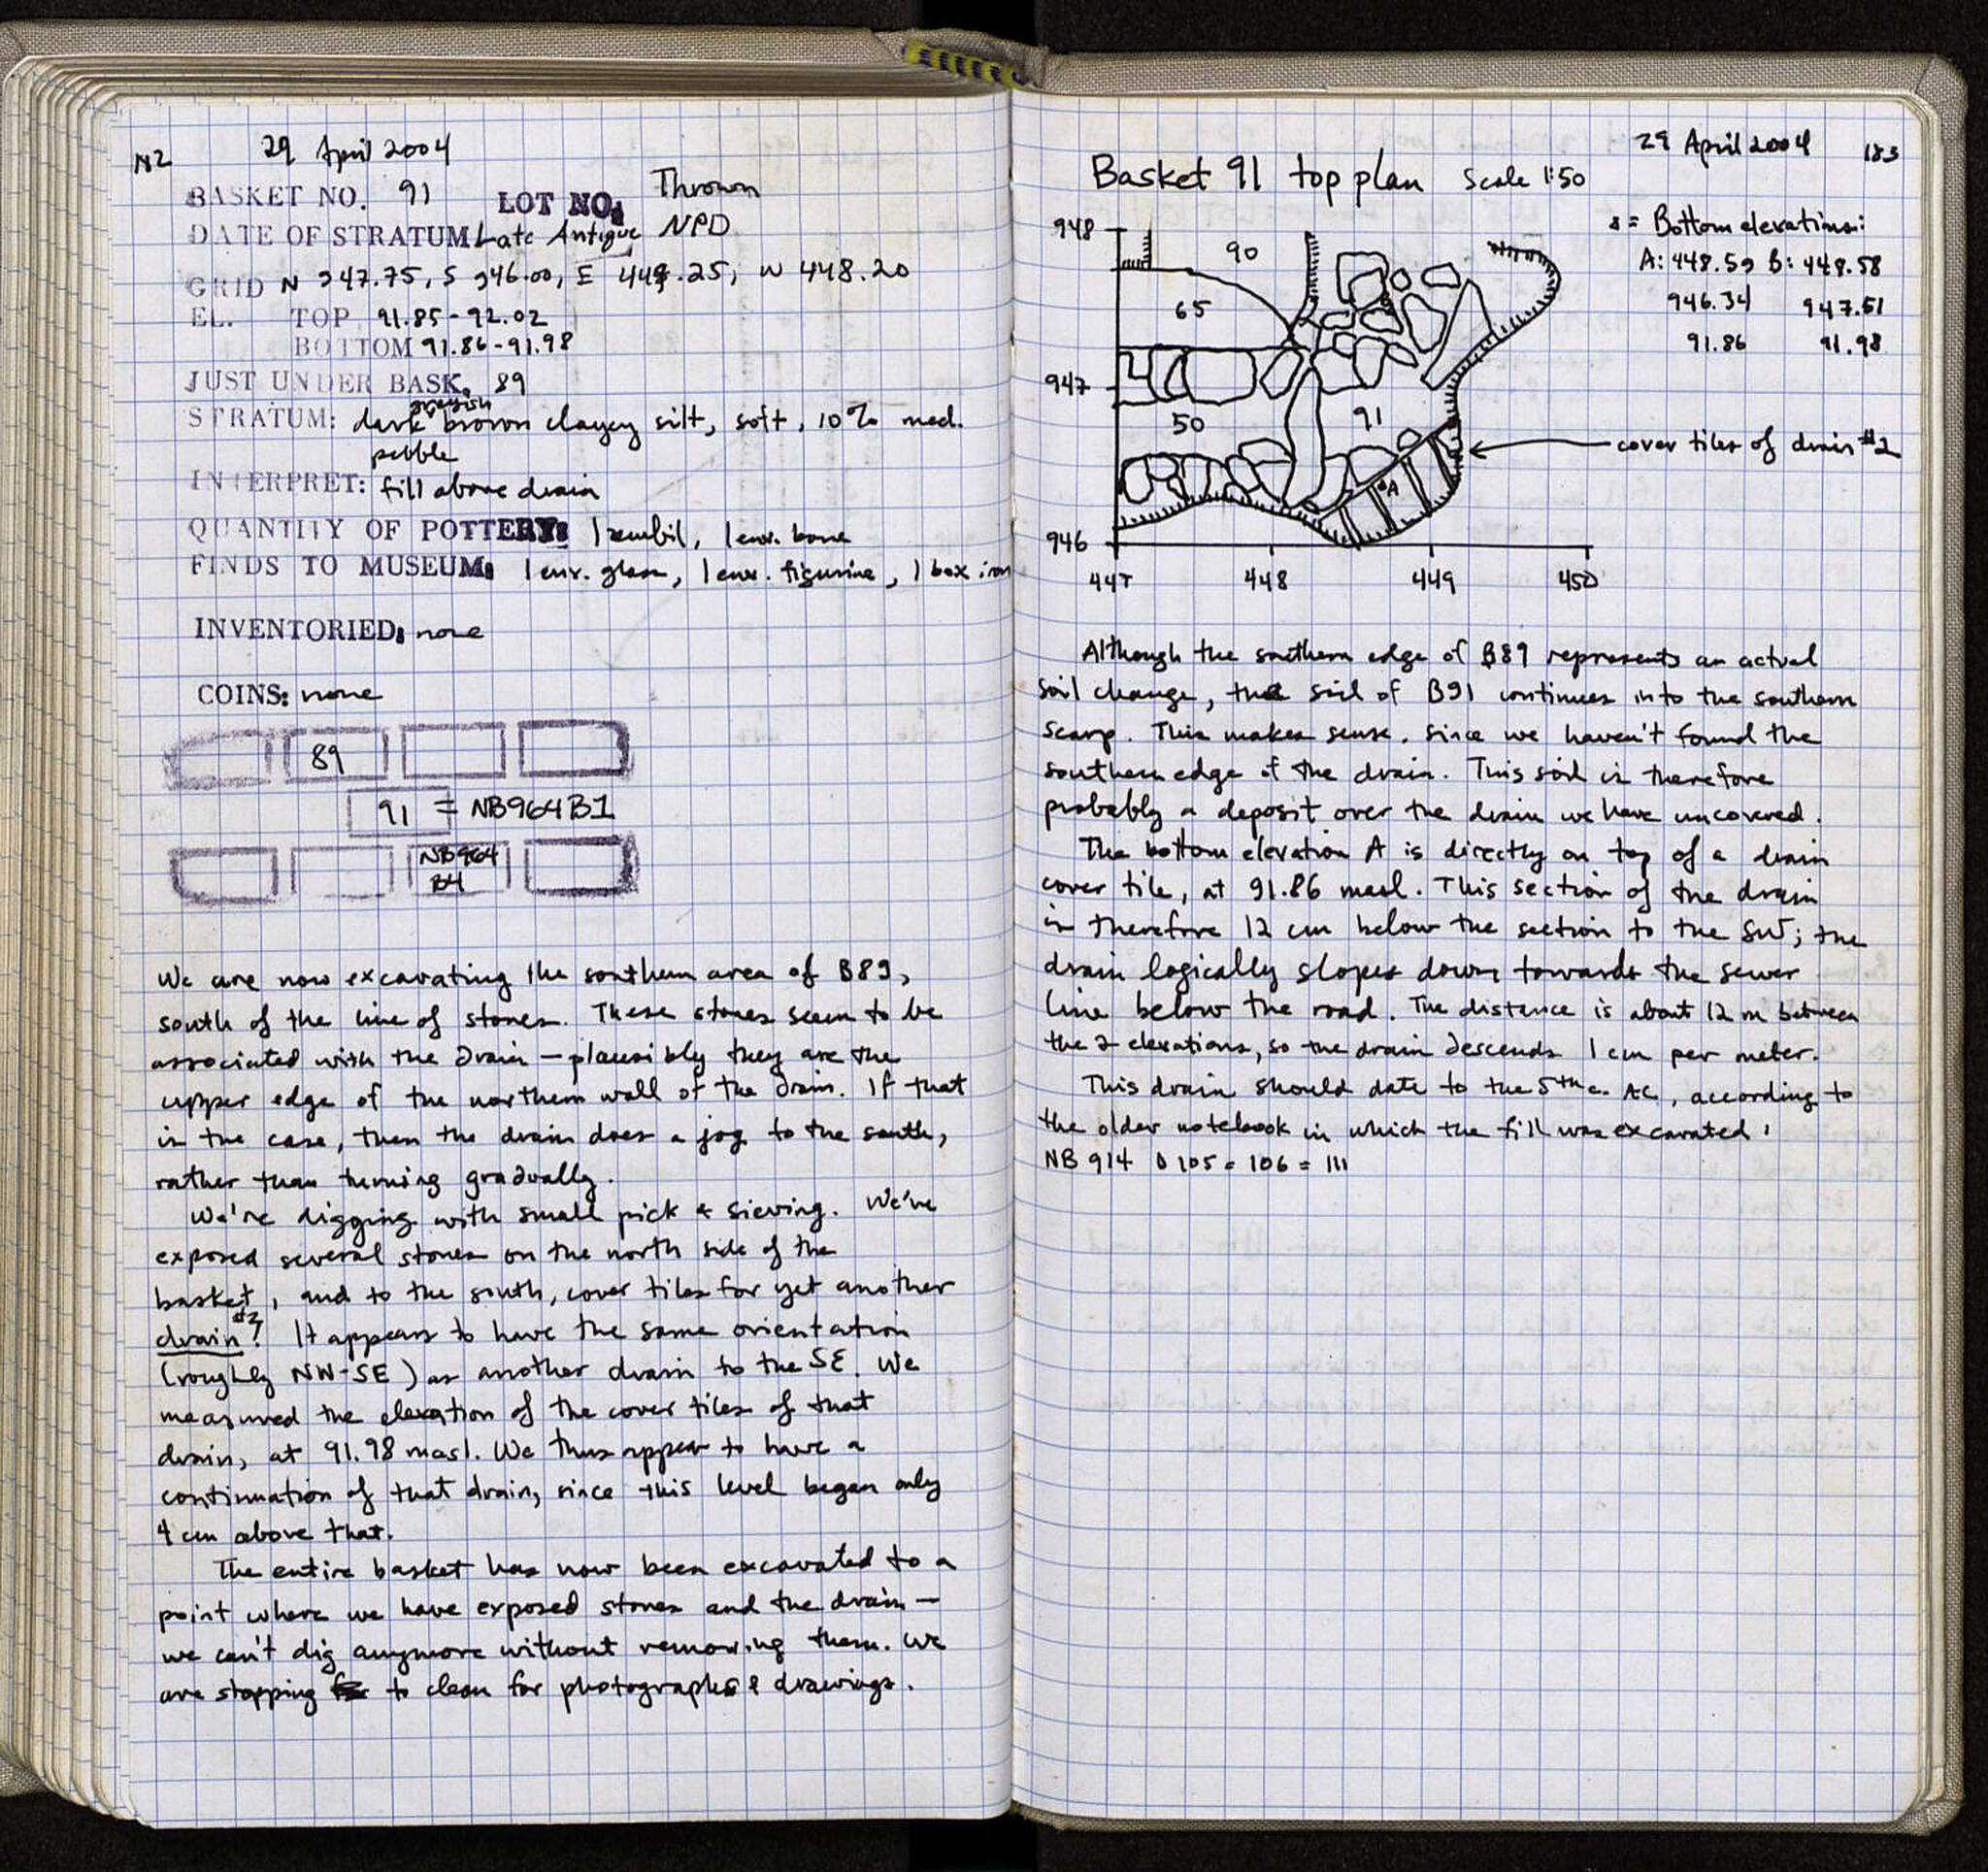 182 29 April 2004
BASKET NO. 91 LOT NO: Thrown
DATE OF STRATUM Late Antique NPD
GRID N 947.75, S 946.00, E 449.25, W 448.20
EL. TOP 91.85-92.02
BOTTOM 91.86-91.98
JUST UNDER BASK. 89
STRATUM: dark greyish brown clayey silt, soft, 10% med.
pebble
INTERPRET: fill above drain
QUANTITY OF POTTERY: 1 zembil, 1 env. bone
FINDS TO MUSEUM: 1 env. glass, 1 env. figurine, 1 box iron
INVENTORIED: none
COINS: none
89
91 = NB964B1
NB964
B4
We are now excavating the southern area of B89,
south of the line of stones. These stones seem to be
associated with the drain – plausibly they are the
upper edge of the northern wall of the drain. If that
is the case, then the drain does a jog to the south,
rather than turning gradually.
We're digging with small pick & sieving. We've
exposed several stones on the north side of the
basket, and to the south, cover tiles for yet another
drain #2! It appears to have the same orientation
(roughly NW-SE) as another drain to the SE. We
measured the elevation of the cover tiles of that
drain, at 91.98 masl. We thus appear to have a
continuation of that drain, since this level began only
4 cm above that.
The entire basket has now been excavated to a
point where we have exposed stones and the drain –
we can't dig anymore without removing them. We
are stopping to clean for photographs & drawings.
29 April 2004 183
Basket 91 top plan Scale 1:50
= Bottom elevations:
A: 448.59 B: 448.58
946.34 947.51
91.86 91.98
948
90
65
947
50
91
cover tiles of drain #2
A
946
447 448 449 450
Although the southern edge of B89 represents an actual
soil change, the soil of B91 continues into the southern
scarp. This makes sense, since we haven't found the
southern edge of the drain. This soil is therefore
probably a deposit over the drain we have uncovered.
The bottom elevation A is directly on top of a drain
cover tile, at 91.86 masl. This section of the drain
is therefore 12 cm below the section to the SW; the
drain logically slopes down towards the sewer
line below the road. The distance is about 12 m between
the 2 elevations, so the drain descends 1 cm per meter.
This drain should date to the 5th c. AC, according to
the older notebook in which the fill was excavated:
NB 914 B 105 = 106 = 111